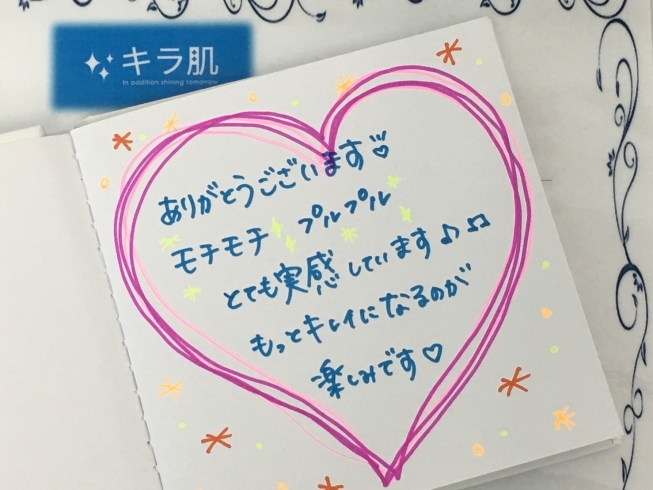 キラ肌
In addition shining tomorrow
ありがとうございます♡
モチモチ プルプル
とても実感しています♪♫
もっとキレイになるのが
楽しみです♡